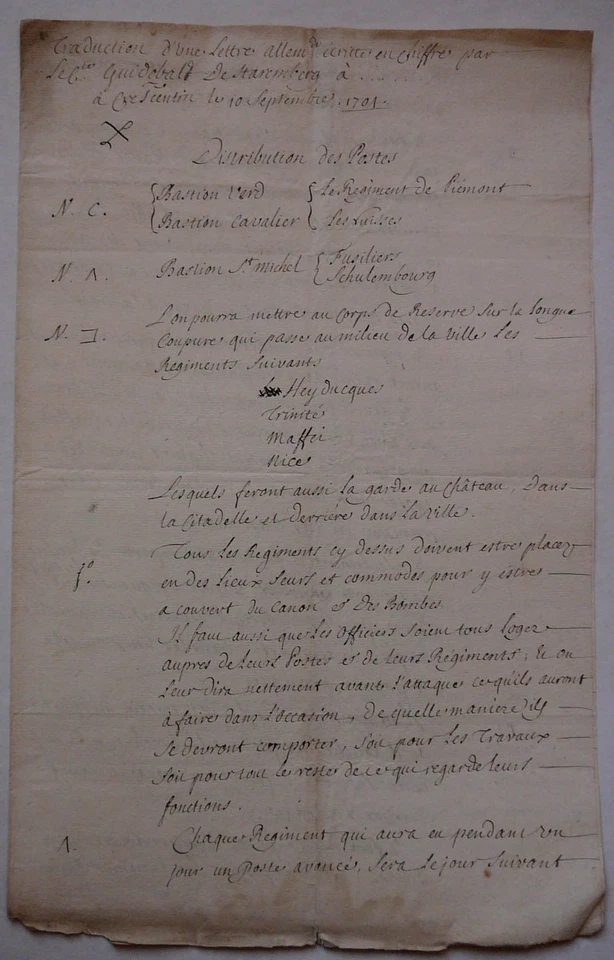 Traduction d'une Lettre allemde écritte en chiffre par
Le Cte Guidobald De Staremberg à ......
à Crescentin le 10 Septembre 1704.
Distribution des Postes
N. C. { Bastion Verd { Le Regiment de Piémont
{ Bastion Cavalier { Les Suisses
N. Λ. Bastion St. Michel { Fusiliers
Schulembourg
L'on pourra mettre au Corps de Reserve sur la longue
N. ⊐. Coupure qui passe au milieu de la ville Les
Regiments Suivants
Heyducques
Trinité
Maffei
Nice
Lesquels feront aussi la garde au Château, Dans
la Citadelle et derriére dans la ville.
Tous les Regiments cy dessus doivent estre placez
en des Lieux seurs et commodes pour y estre
a couvert du Canon & Des Bombes.
Il faut aussi que Les Officiers soient tous logez
aupres de leurs Postes & de leurs Régiments; & on
Leur dira nettement avant l'attaque ce qu'ils auront
à faire dans l'occasion, De quelle maniere ils
se devront comporter, soit pour Les Travaux
soit pour tout le reste de ce qui regarde leurs
fonctions.
Λ. Chaque Regiment qui aura eu pendant un
jour un Poste avancé, sera le jour suivant